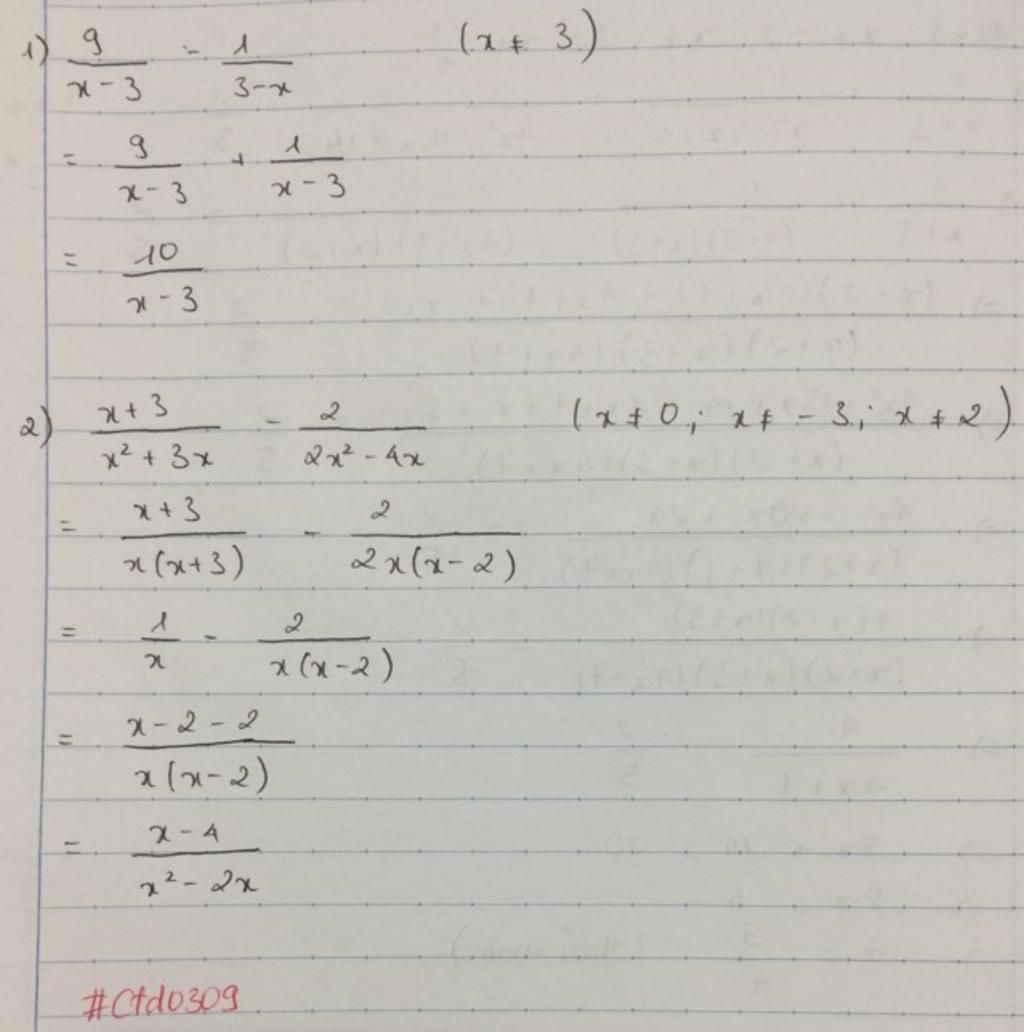 1) 9/(x-3) - 1/(3-x) (x ≠ 3)
= 9/(x-3) + 1/(x-3)
= 10/(x-3)
2) (x+3)/(x² + 3x) - 2/(2x² - 4x) (x ≠ 0; x ≠ -3; x ≠ 2)
= (x+3)/(x(x+3)) - 2/(2x(x-2))
= 1/x - 2/(x(x-2))
= (x-2-2)/(x(x-2))
= (x-4)/(x² - 2x)
#Ctd0309